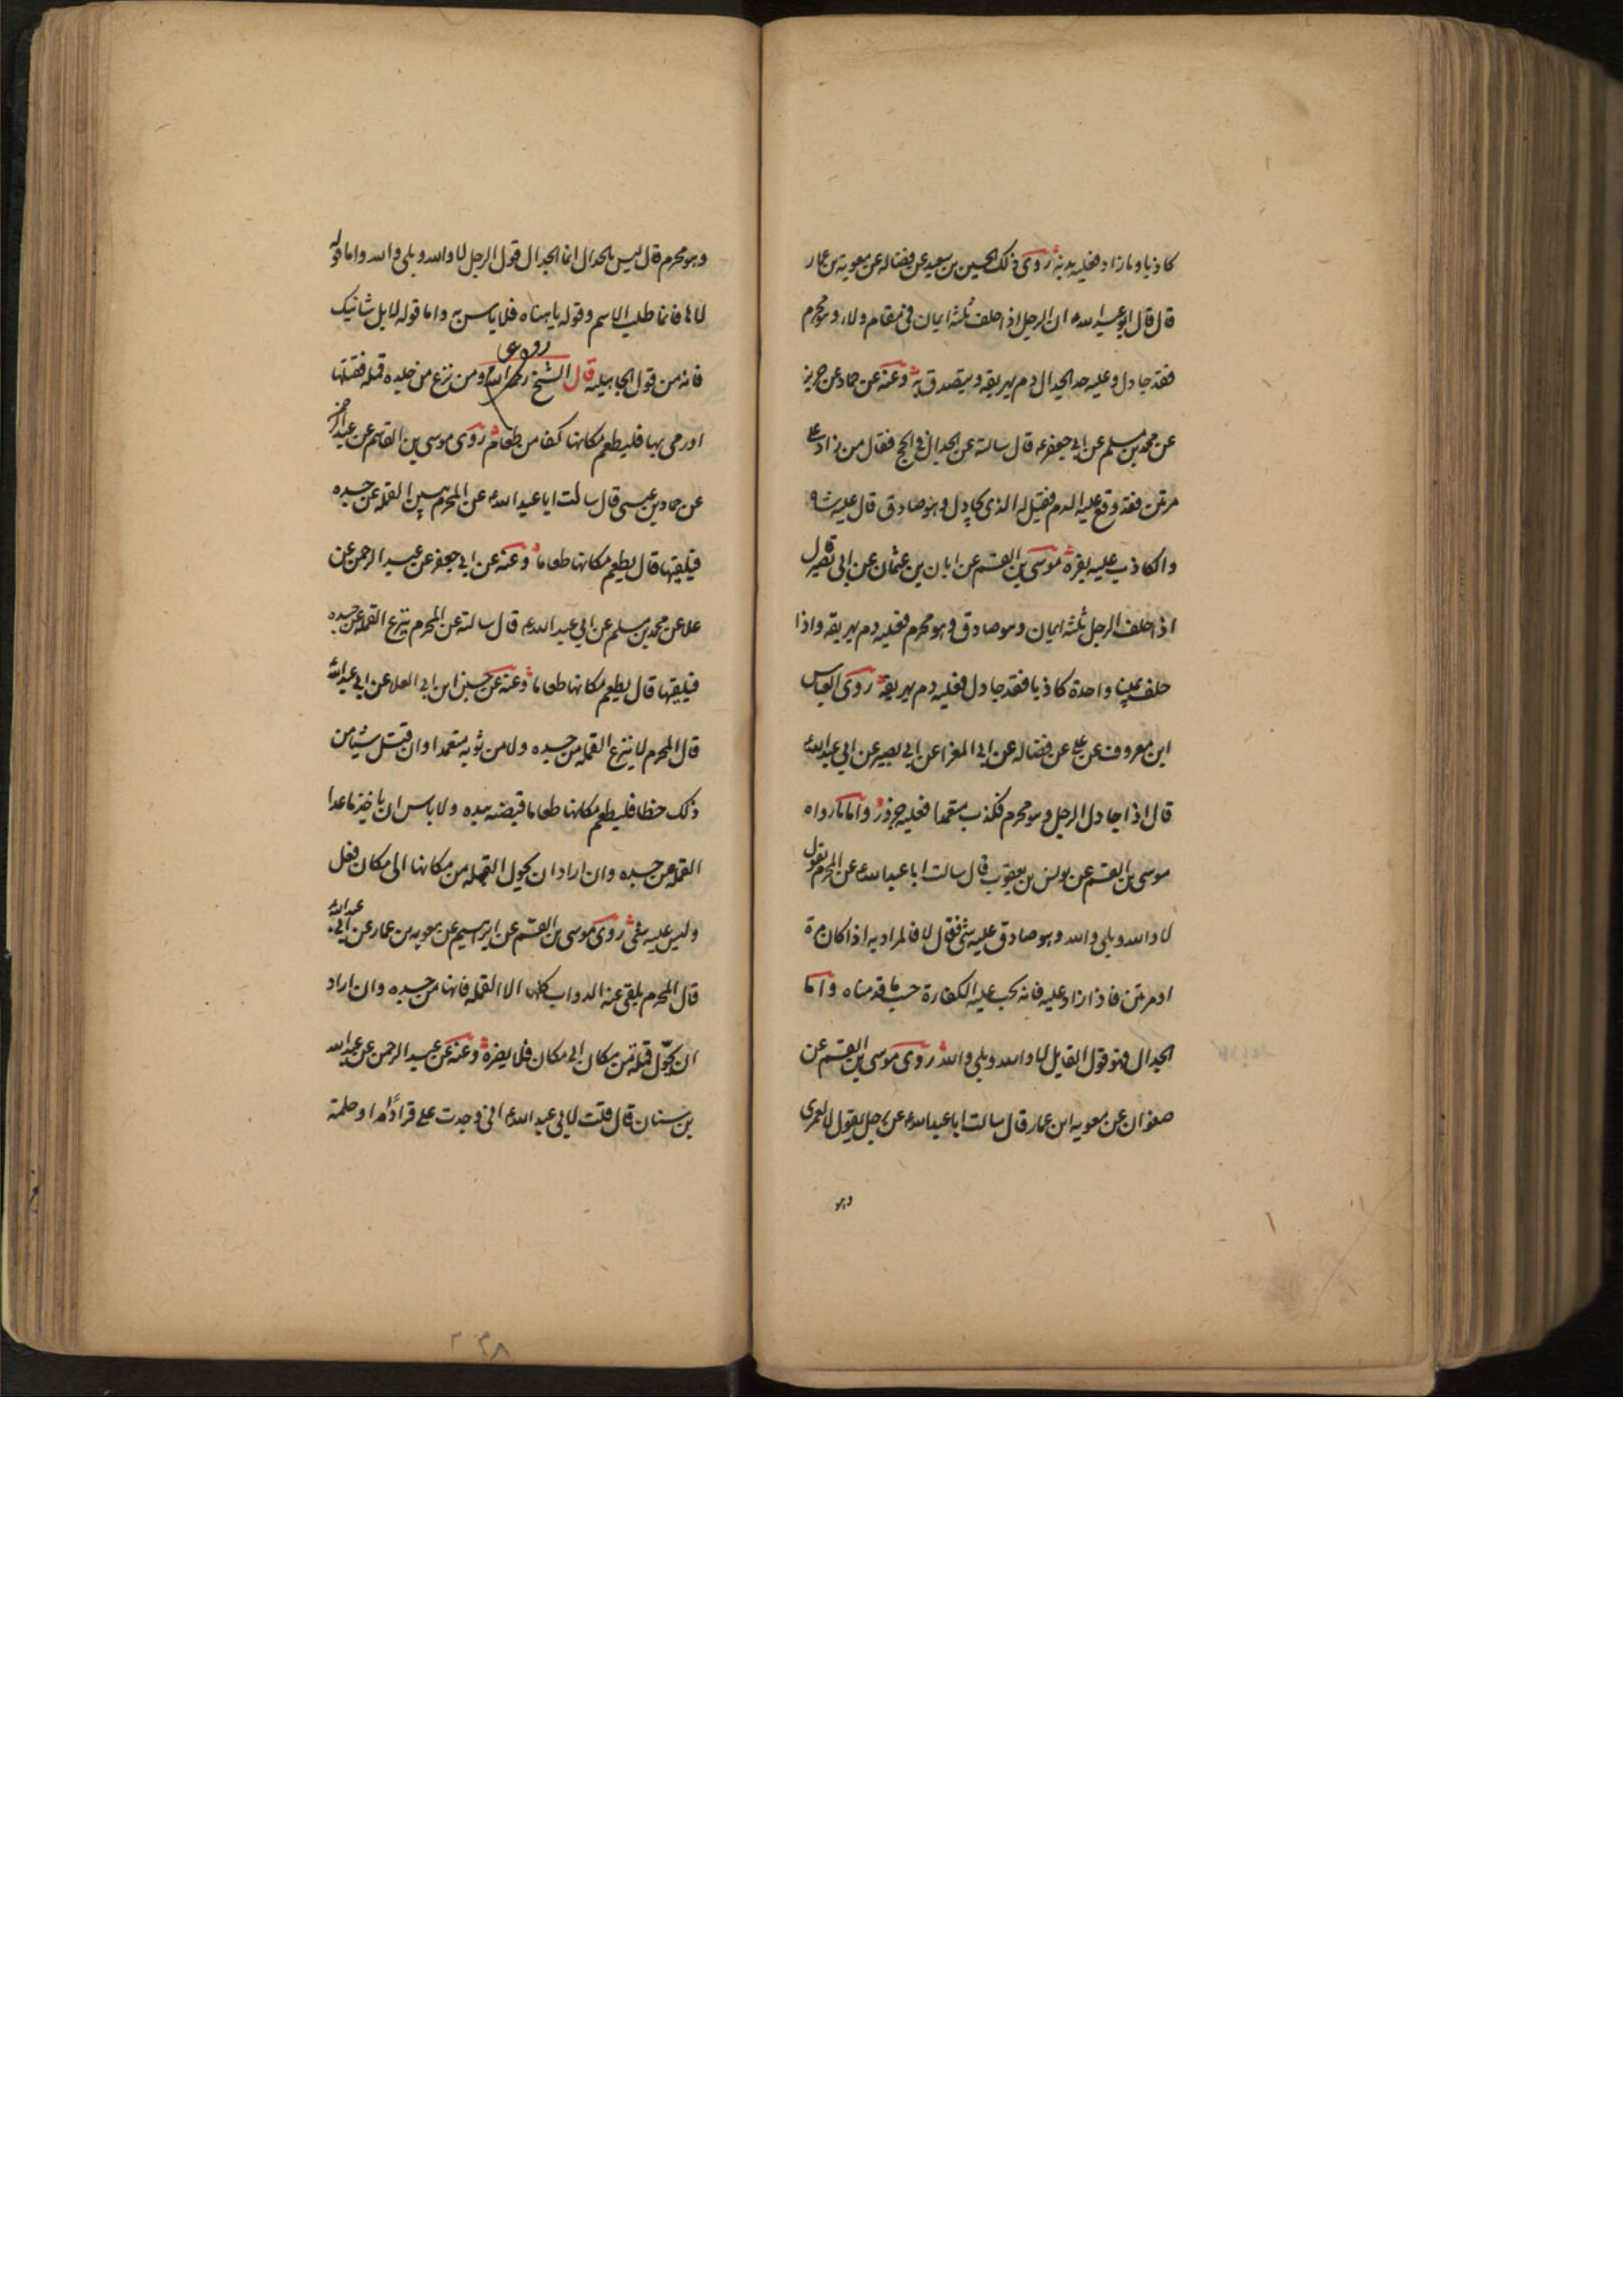 كاذبا وما زاد فعليه بدنة روى ذلك الحسين بن سعيد عن فضاله عن معوية بن عمار
قال قال ابو عبد الله ان الرجل اذا حلف ثلثة ايمان في مقام ولاء وهو محرم
فقد جادل وعليه حد الجدال دم يهريقه ويتصدق به وعنه عن حماد عن حريز
عن محمد بن مسلم عن ابي جعفر ع قال سالته عن الجدال في الحج فقال من زاد على
مرتين فقد وقع عليه الدم فقيل له الذي يجادل وهو صادق قال عليه شاة
والكاذب عليه بقرة موسى بن القسم عن ابان بن عثمان عن ابي بصير قال
اذا حلف الرجل ثلثة ايمان وهو صادق وهو محرم فعليه دم يهريقه واذا
حلف يمينا واحدة كاذبا فقد جادل فعليه دم يهريقه روى العباس
ابن معروف عن علي عن فضاله عن ابي المغرا عن ابي بصير عن ابي عبد الله
قال اذا جادل الرجل وهو محرم فكذب متعمدا فعليه جزور واما ما رواه
موسى بن القسم عن يونس بن يعقوب قال سالت ابا عبد الله عن المحرم يقول
لا والله وبلى والله وهو صادق عليه شئ فقال لا فالمراد به اذا كان مرة
او مرتين فاذا زاد عليه فانه يجب عليه الكفارة حسب ما قدمناه واما
الجدال فهو قول القايل لا والله وبلى والله روى موسى بن القسم عن
صفوان عن معويه ابن عمار قال سالت ابا عبد الله عن رجل يقول لا لعمرى
وهو
وهو محرم قال ليس بالجدال انما الجدال قول الرجل لا والله وبلى والله واما قوله
لاها فانما طلب الاسم وقوله ياهناه فلا باس به واما قوله لا بل شانيك
فانه من قول الجاهلية قال الشيخ رحمه الله ومن نزع من جلده قملة فقتلها
او رمى بها فليطعم مكانها كفا من طعام روى موسى بن القاسم عن عبد الرحمن
عن حماد بن عيسى قال سالت ابا عبد الله عن المحرم يبين القملة عن جسده
فيلقيها قال يطعم مكانها طعاما وعنه عن ابي جعفر عن عبد الرحمن عن
علا عن محمد بن مسلم عن ابي عبد الله قال سالته عن المحرم ينزع القملة عن جسده
فيلقيها قال يطعم مكانها طعاما وعنه عن حسين ابن ابي العلا عن ابي عبد الله
قال المحرم لا ينزع القملة من جسده ولا من ثوبه متعمدا وان قتل شيئا من
ذلك خطا فليطعم مكانها طعاما قبضة بيده ولا باس ان ياخذ ما عدا
القملة من جسده وان اراد ان يحول القملة من مكانها الى مكان فعل
وليس عليه شئ روى موسى بن القسم عن ابرهيم عن معويه بن عمار عن ابي عبد الله
قال المحرم يلقى عنه الدواب كلها الا القملة فانها من جسده وان اراد
ان يحول قملة من مكان الى مكان فلا يضره وعنه عن عبد الرحمن عن عبد الله
بن سنان قال قلت لابي عبد الله اني وجدت على قرادا او حلمة
٢٣٨